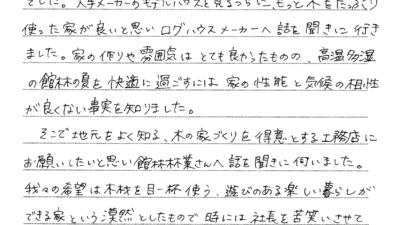 でした。大手メーカーのモデルハウスを見るうちに、もっと木をたっぷり
使った家が良いと思いログハウスメーカーへ話を聞きに行き
ました。家の作りや雰囲気はとても良かったものの、高温多湿
の館林の夏を快適に過ごすには家の性能と気候の相性
が良くない事実を知りました。
そこで地元をよく知る、木の家づくりを得意とする工務店に
お願いしたいと思い館林林業さんへ話を聞きに伺いました。
我々の希望は木材を目一杯使う、遊びのある楽しい暮らしが
できる家という漠然としたもので時には社長を苦笑いさせて